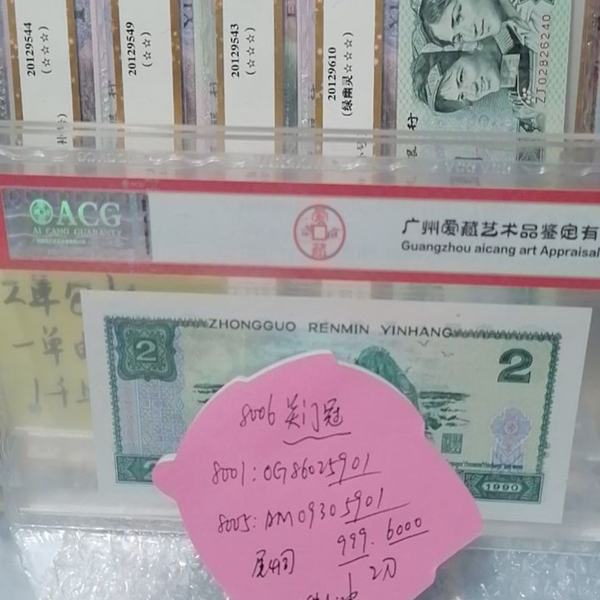 20129544
(☆☆☆)
20129549
(☆☆)
20129543
(☆☆☆)
20129610
(绿幽灵☆☆☆)
ZJ02826240
ACG
AI CANG GUARANTY
广州爱藏艺术品鉴定有
Guangzhou aicang art Appraisal
ZHONGGUO RENMIN YINHANG
2
2
1990
8006 关门冠
8001: OG86025901
8005: AM09305901
尾同 999. 6000
2刀